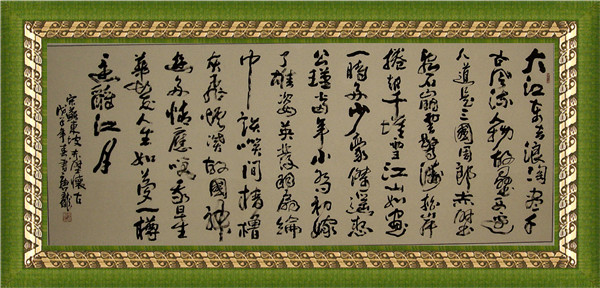 大江东去浪淘尽千
古风流人物故壘西边
人道是三國周郎赤壁
乱石崩雲驚涛拍岸
捲起千堆雪江山如畫
一時多少豪傑遥想
公瑾當年小喬初嫁
了雄姿英發羽扇綸
巾談笑间檣櫓
灰飛煙滅故國神
遊多情應笑我早生
華髮人生如夢一樽
還酹江月
宋蘇東坡赤壁懷古
戊子年春書